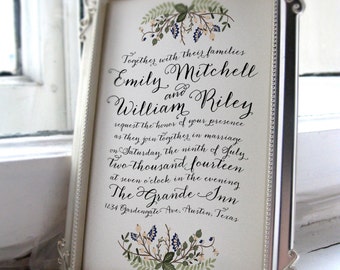 Together with their families
Emily Mitchell
and
William Riley
request the honor of your presence
as they join together in marriage
on Saturday, the ninth of July
two thousand fourteen
at seven o'clock in the evening
The Grande Inn
1234 Gardengate Ave, Austin, Texas